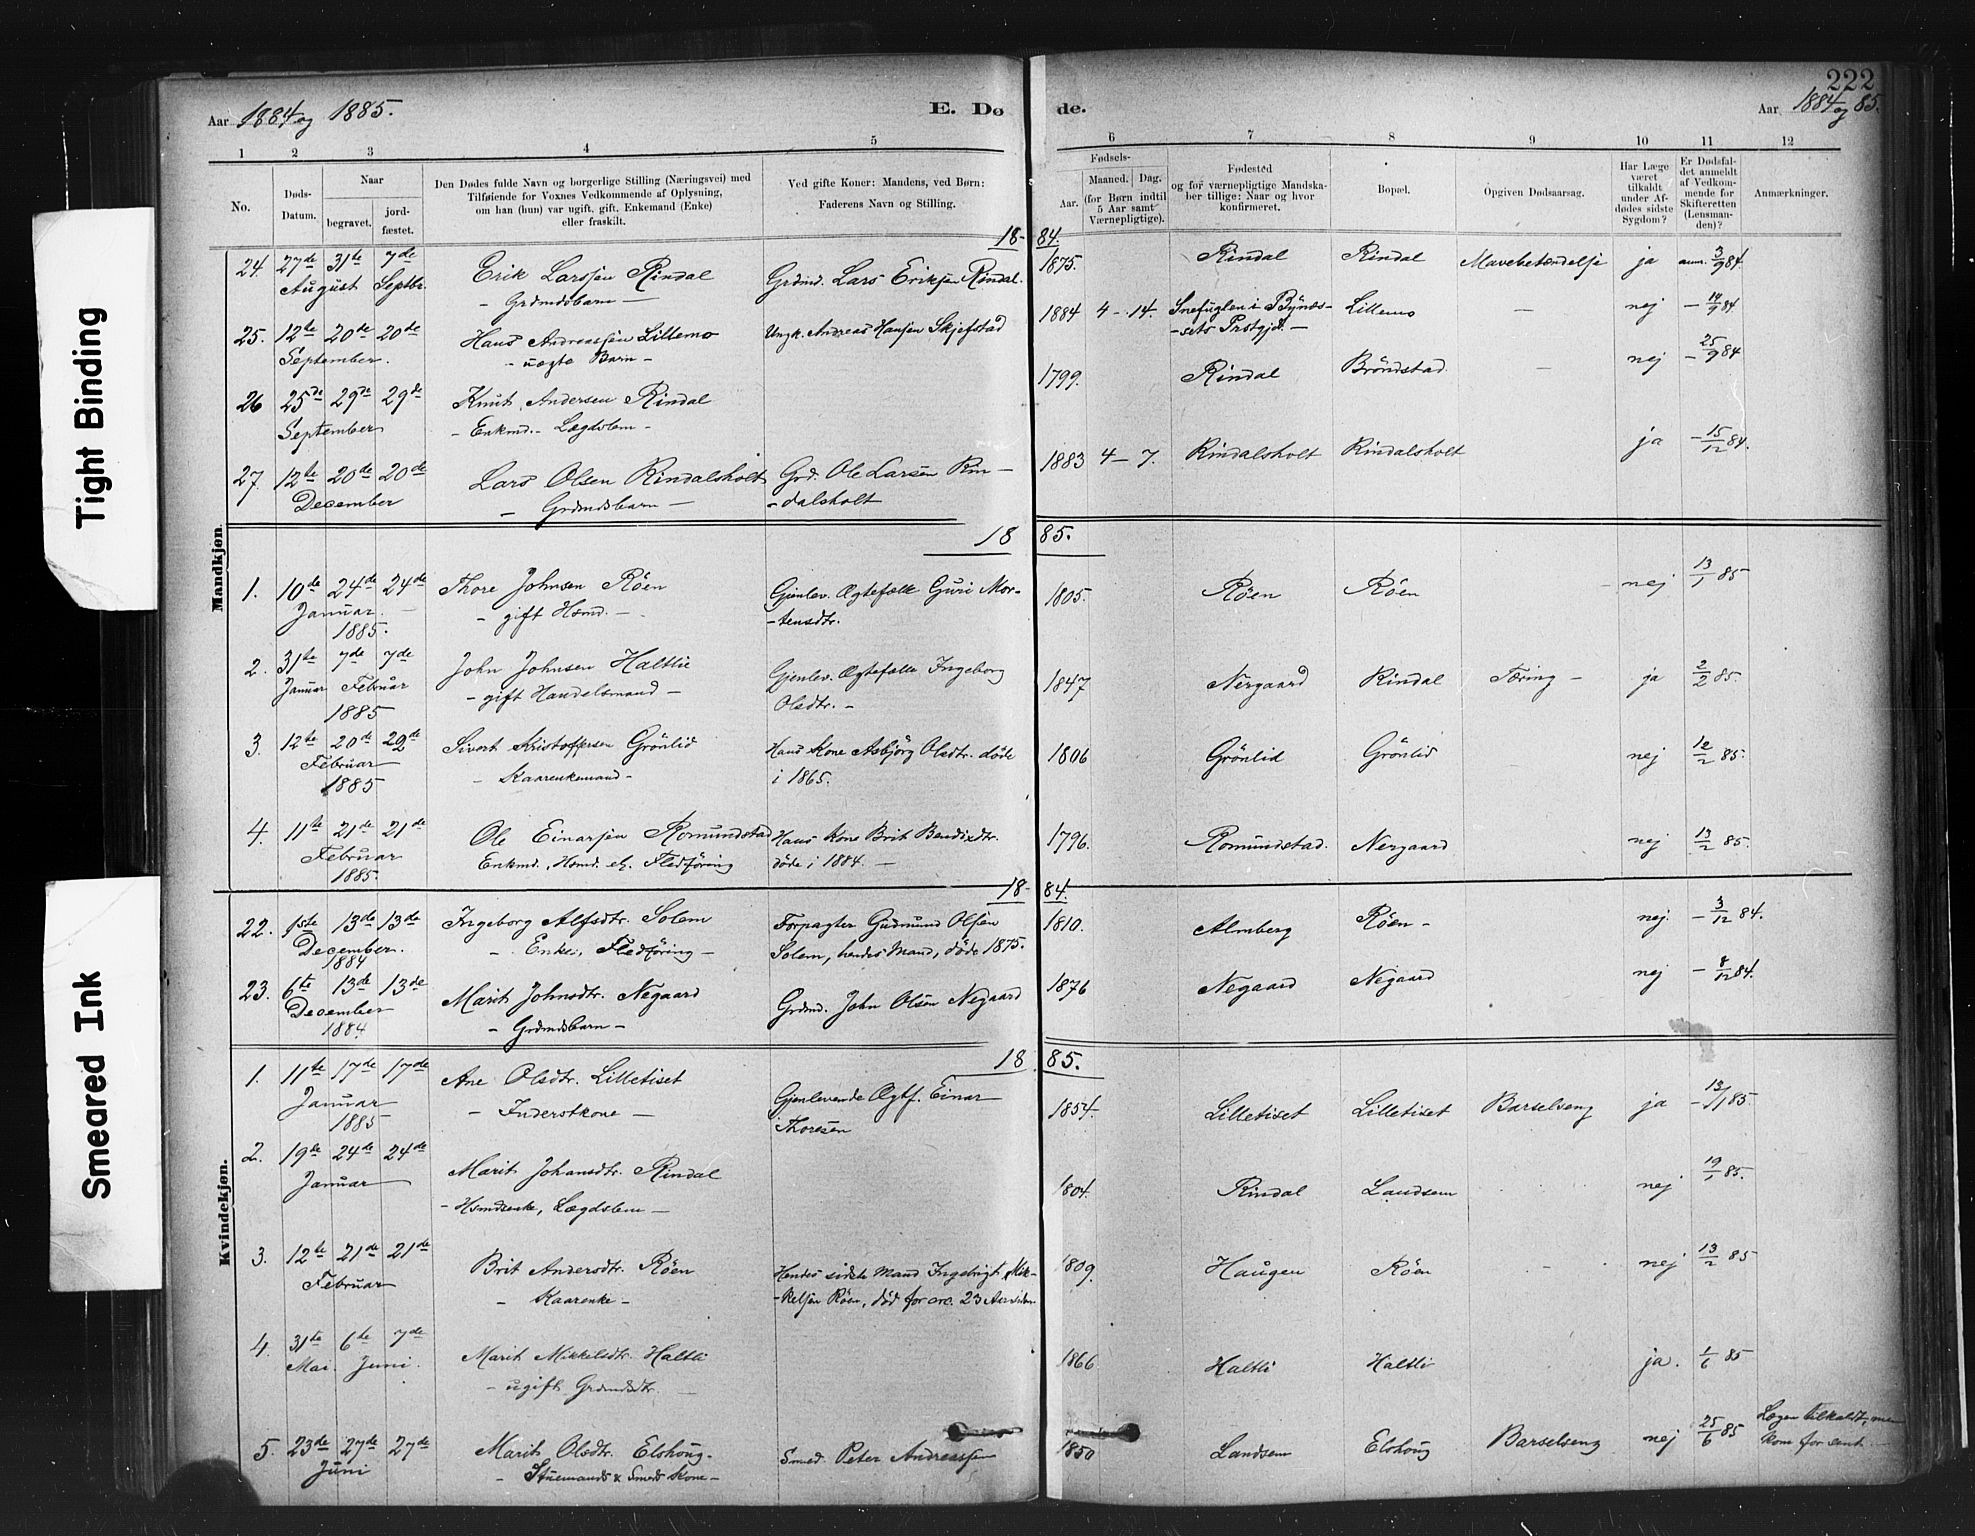 222
Aar 1884 og 1885.
E. Dø de.
Aar 1884 og 85.
1 2 3 4 5 6 7 8 9 10 11 12
No.
Døds-Datum.
Naar
begravet. jord-fæstet.
Den Dødes fulde Navn og borgerlige Stilling (Næringsvei) med
Tilføiende for Voxnes Vedkommende af Oplysning,
om han (hun) var ugift, gift, Enkemand (Enke)
eller fraskilt.
Ved gifte Koner: Mandens, ved Børn:
Faderens Navn og Stilling.
Fødsels-
Aar. Maaned. Dag.
(for Børn indtil
5 Aar samt
Værnepligtige).
Fødestéd
og for værnepligtige Mandska-
ber tillige: Naar og hvor
konfirmeret.
Bopæl.
Opgiven Dødsaarsag.
Har Læge
været
tilkaldt
under Af-
dødes sidste
Sygdom?
Er Dødsfal-
det anmeldt
af Vedkom-
mende for
Skifteretten
(Lensman-
den)?
Anmærkninger.
Mandkjøn.
18- 84.
24 27de 31te 7de Erik Larssen Rindal Grdmd. Lars Eriksen Rindal. 1875. Rindal Rindal Mavebetændelse ja anm. 3/9 84
August Septbr. - Grdmdsbarn -
25. 12te 20de 20de Hans Andreassen Lillemo Ungk. Andreas Hansen Skjefstad 1884 4 - 14. Snefuglen i Bynæs- Lillemo - nej - 14/9 84
September. - uægte Barn - -sets Prstgjd. -
26 25de 29de 29de Knut Andersen Rindal 1799. Rindal Bröndstad - nej - 25/9 84
September - Enkmd. - Lægdslem -
27. 12te 20de 20de Lars Olsen Rindalsholt Grd. Ole Larsen Rin- 1883 4 - 7. Rindalsholt Rindalsholt ja - 15/12 84.
December - Grdmdsbarn - -dalsholt
18 85.
1. 10de 24de 24de Thore Johnsen Röen Gjenlev. Ægtefælle Guri Mor- 1805. Röen Röen - nej 13/1 85
Januar. - gift Hsmd. - -tensdtr.
1885.
2. 31te 7de 7de John Johnsen Haltlie Gjenlev. Ægtefælle Ingeborg 1847 Nergaard Rindal Tæring - ja 2/2 85.
Januar Februar - gift Handelsmand - Olsdtr. -
1885
3. 12te 20de 20de Sivert Kristoffersen Grönlid Hans Kone Asbjörg Olsdtr. döde 1806 Grönlid Grönlid nej 12/2 85.
Februar - Kaarenkemand - i 1865.
1885
4. 11te 21de 21de Ole Einarsen Romundstad Hans Kone Brit Bendixdtr. 1796. Romundstad. Nergaard nej 13/2 85.
Februar Enkmd., Hsmd. el. Fledföring döde i 1884. -
1885.
18- 84.
Kvindekjøn.
22. 1ste 13de 13de Ingeborg Alfsdtr. Solem Forpagter Gudmund Olsen 1810. Almberg Röen - nej. - 3/12 84.
December. - Enke, Fledföring - Solem, hendes Mand, döde 1875.
1884
23. 6te 13de 13de Marit Johnsdtr. Negaard Grdmd. John Olsen Negaard 1876 Negaard Negaard nej - 8/12 84.
December - Grdmdsbarn -
1884.
18 85.
1. 11te 17de 17de Ane Olsdtr. Lilletiset Gjenlevende Ægtf. Einar 1854 Lilletiset Lilletiset Barselseng ja - 13/1 85
Januar - Inderstkone - Thoresen
1885
2. 19de 24de 24de Marit Johansdtr. Rindal 1804. Rindal Landsem nej 19/1 85.
Januar - Hsmdsenke, Lægdslem -
3. 12te 21de 21de Brit Andersdtr. Röen Hendes sidste Mand Ingebrigt Mik- 1809. Haugen Röen - nej 13/2 85
Februar - Kaarenke - -kelsen Röen, död for crc. 23 Aar siden
4. 31te 6te 7de Marit Mikkelsdtr. Haltli 1866 Haltli Haltli ja. 1/6 85
Mai. Juni. - ugift Grdmdsdtr. -
5. 23de 27de 27de Marit Olsdtr. Elshoug Smed. Peter Andreassen 1850 Landsem Elshoug Barselseng nej 25/6 85 Lægen tilkaldt, men
Juni - Stuemands & Smeds Kone - kom for sent. -
Tight Binding
Smeared Ink